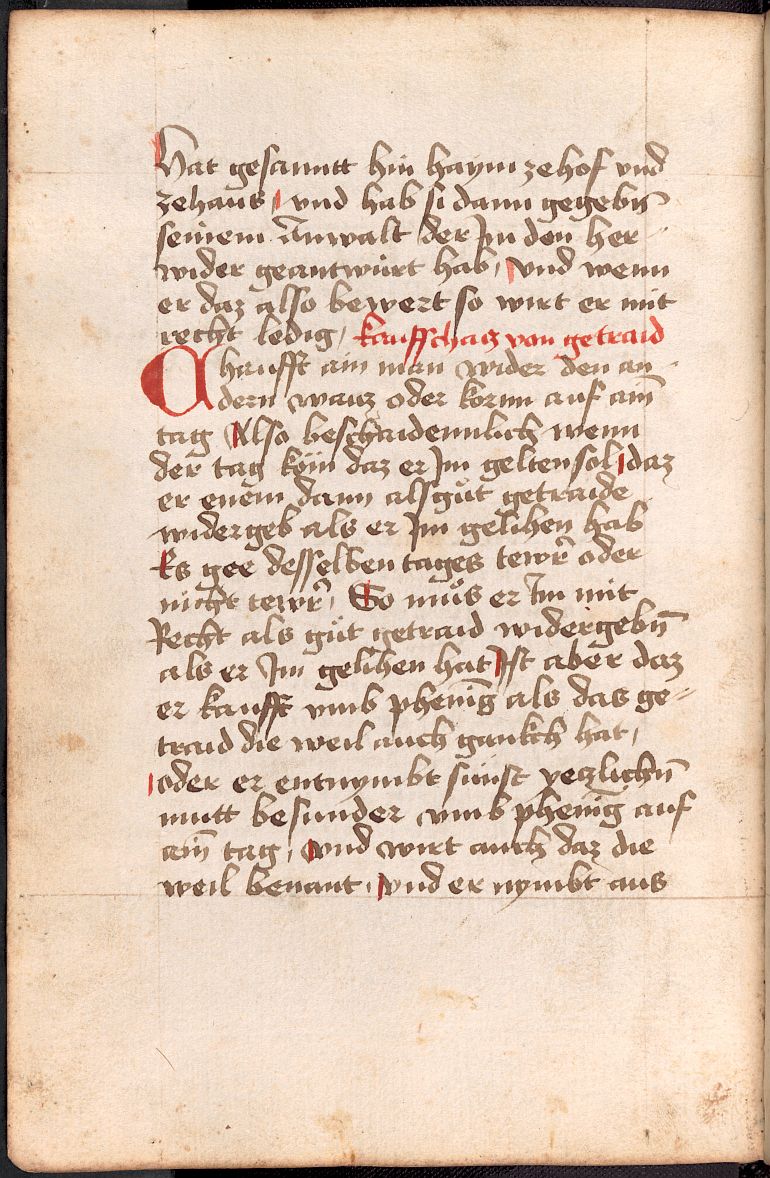 Hat gesanntt hin haym ze hof vnd
ze haus / vnd hab si dann gegebn̄
seinem Anwalt der Im den her
wider geantwürt hab / vnd wenn
er daz also bewert so wirt er mit
recht ledig / kauffschatz von getraid
Chaufft ain man wider den an
dern waitz oder kornn auf ain̄
tag Also beschaidennlich wenn
der tag köm daz er Im gelten sol / daz
er enem dann als gůt getraide
widergeb als er Im gelihen hab
Es gee desselben tages tewr̄ oder
nicht tewr̄ / So můs er Im mit
Recht als gůt getraid widergebn̄
als er Im gelihen hat Ist aber daz
er kaufft vmb phenīg als das ge=
traid die weil auch gankch hat /
oder er entnymbt sünst yetzlichn̄
mutt besunder vmb phenīg auf
ain̄ tag / vnd wirt auch daz die
weil benant / vnd er nymbt aus